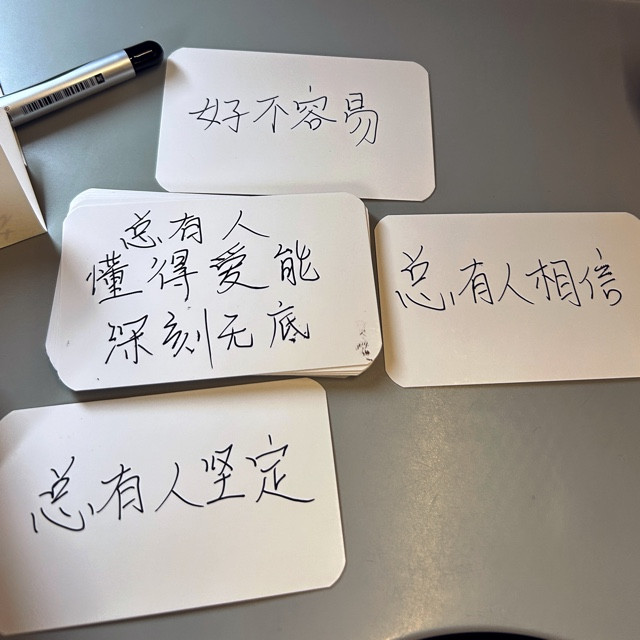 好不容易
总有人
懂得爱能
深刻无底
总有人相信
总有人坚定